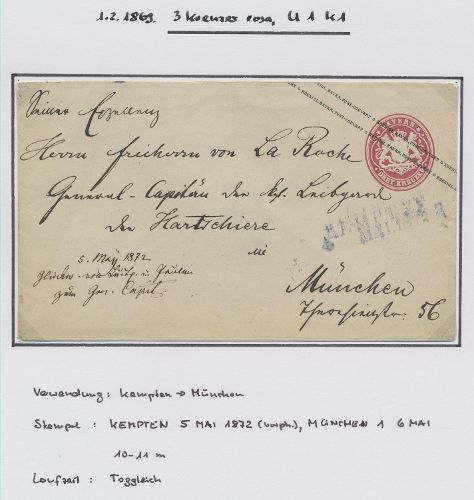 1.2.1869, 3 Kreuzer rosa, U 1 K1
Seiner Exzellenz
Herrn Freiherrn von La Roche
General-Capitän der kgl. Leibgarde
der Hartschiere
in
München
Theresienstr. 56
5. May 1872
zum Gen. Capit.
BAYERN
DREI KREUZER
KEMPTEN
5 MAI
Verwendung: Kempten → München
Stempel : KEMPTEN 5 MAI 1872 (vorph.), MÜNCHEN 1 6 MAI
10-11 m
Laufzeit : Taggleich